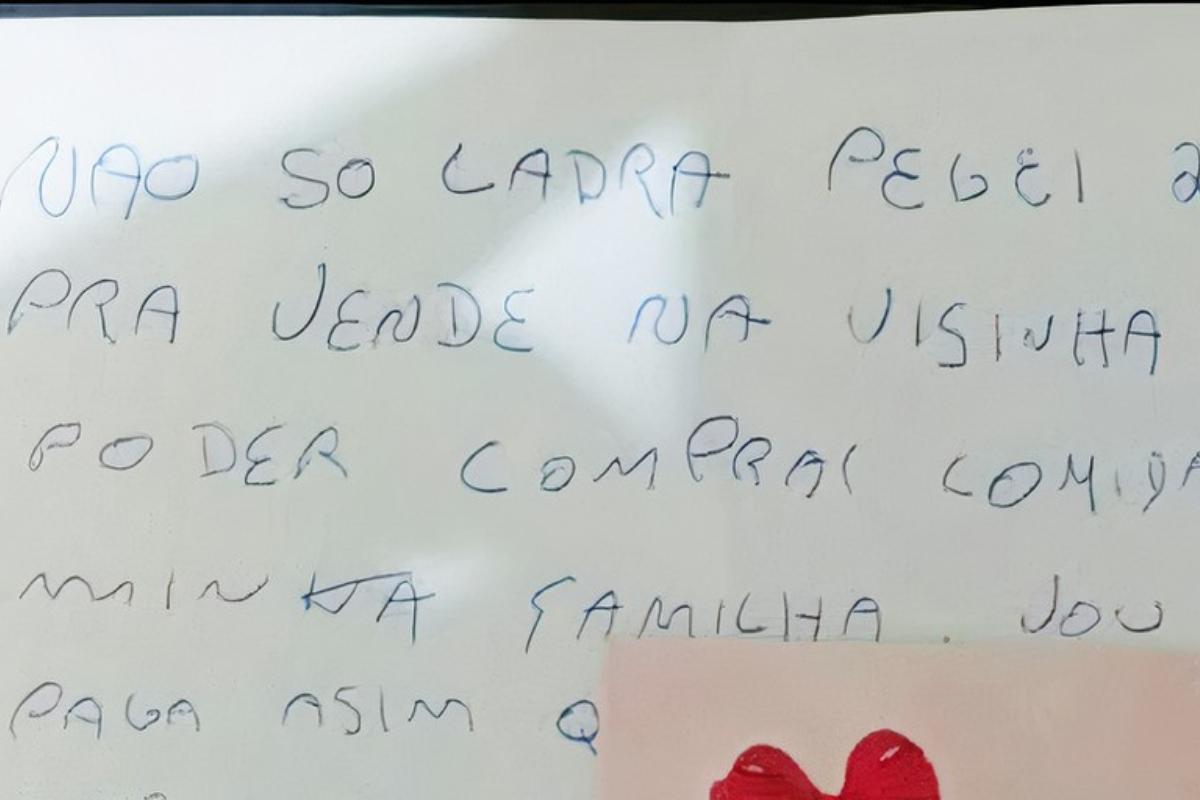 NAO SO LADRA PEGEI 2
PRA VENDE NA VISINHA
PODER COMPRAR COMIDA
MINHA FAMILHA. VOU
PAGA ASIM Q